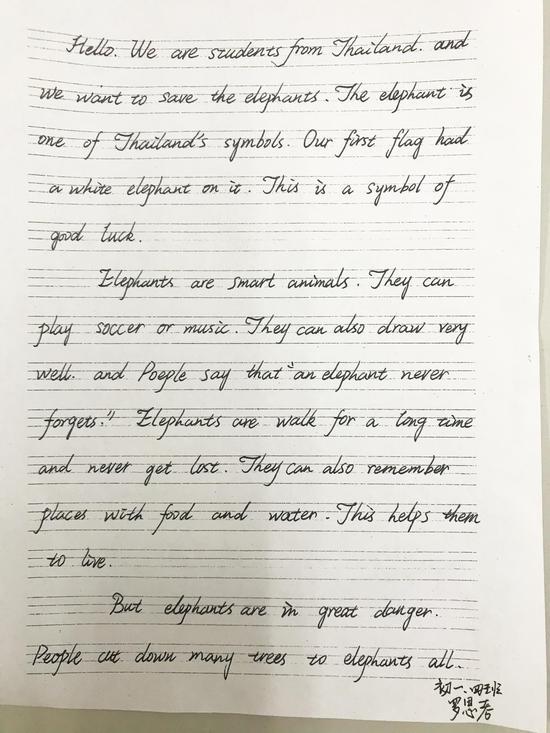 Hello. We are students from Thailand. and
we want to save the elephants. The elephant is
one of Thailand's symbols. Our first flag had
a white elephant on it. This is a symbol of
good luck.
Elephants are smart animals. They can
play soccer or music. They can also draw very
well. and Poeple say that "an elephant never
forgets." Elephants are walk for a long time
and never get lost. They can also remember
places with food and water. This helps them
to live.
But elephants are in great danger.
People cut down many trees to elephants all.
初一.四班
罗思